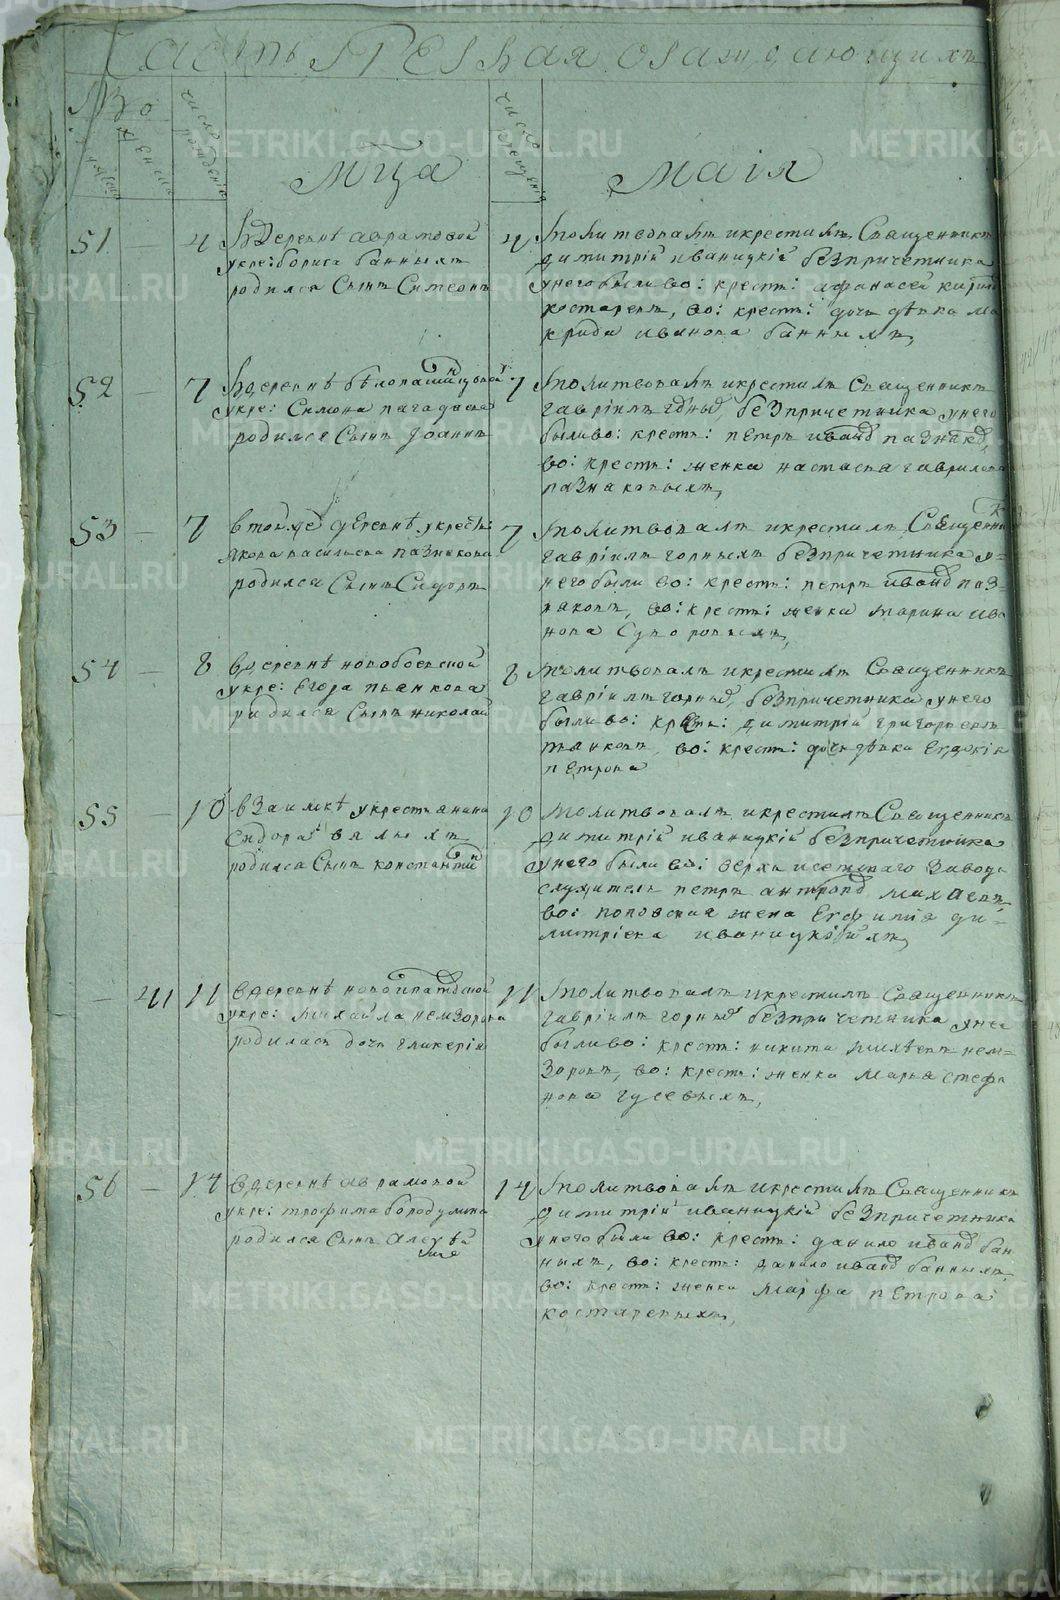 Часть первая о раждающихся
Мца маія
51 4 В деревне аврамовой
у кре: бориса банныхъ
родился Сынъ Симеонъ
4 молитвовалъ и крестилъ Священникъ
димитрій иваницкій без причетника
у него были во: крестъ: афанасей
костаревъ, во: крестъ: дочь девка ма
крида иванова банныхъ,
52 — 7
у кре: Симона
родился Сынъ Іоаннъ
7 молитвовалъ и крестилъ Священникъ
гавріилъ горныхъ, без причетника у него
были во: крестъ: петръ ивановъ
во: крестъ: женка настасья гаврилова
пазнаковыхъ,
53 — 7 в той же деревне, у крестъ:
якова васильева пазнакова
родился Сынъ Сидоръ
7 молитвовалъ и крестилъ Священникъ
гавріилъ горныхъ без причетника у
него были во: крестъ: петръ ивановъ паз
наковъ, во: крестъ: женка марина ива
нова Суворовыхъ,
54 — 8 в деревне новобоевской
у кре: Егора пьянкова
родился Сынъ николай
8 молитвовалъ и крестилъ Священникъ
гавріилъ горныхъ, без причетника у него
были во: крестъ: димитрій григорьевъ
пьянковъ, во: крестъ: дочь девка Евдокія
петрова
55 — 10 в Заимке у крестьянина
Сидора вялыхъ
родился Сынъ константинъ
10 молитвовалъ и крестилъ Священникъ
димитрій иваницкій без причетника
у него были во: верхъ исетскаго завода
служитель петръ антоновъ михаевъ
во: поповская жена Евфимія ди-
митріева иваницкихъ,
— 41 11 в деревне новоипатовской
у кре: михайла немзорова
родилась дочь гликерія
11 молитвовалъ и крестилъ Священникъ
гавріилъ горныхъ без причетника у него
были во: крестъ: никита михеевъ нем-
зоровъ, во: крестъ: женка марья стефа
нова гусевыхъ,
56 — 14 в деревне аврамовой
у кре: трофима бородулина
родился Сынъ Алексей
14 молитвовалъ и крестилъ Священникъ
димитрій иваницкій без причетника
у него были во: крестъ: данило ивановъ бан
ныхъ, во: крестъ: данило ивановъ банныхъ
во: крестъ: женка марфа петрова
костаревыхъ,
METRIKI.GASO-URAL.RU